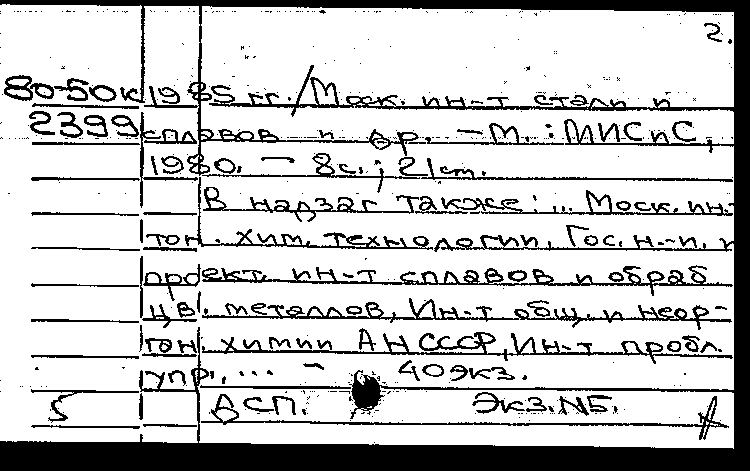 2.
80-50к 1985 гг./Моск. ин-т стали и
2399 сплавов и др. – М.: МИСиС,
1980. – 8с.; 21см.
В надзаг также: ... Моск. ин-т
тон. хим. технологии, Гос. н.-и. и
проект. ин-т сплавов и обраб
цв. металлов, Ин-т общ. и неор-
ган. химии АН СССР, Ин-т пробл.
упр., ... – 40экз.
5 ДСП. Экз.№5.